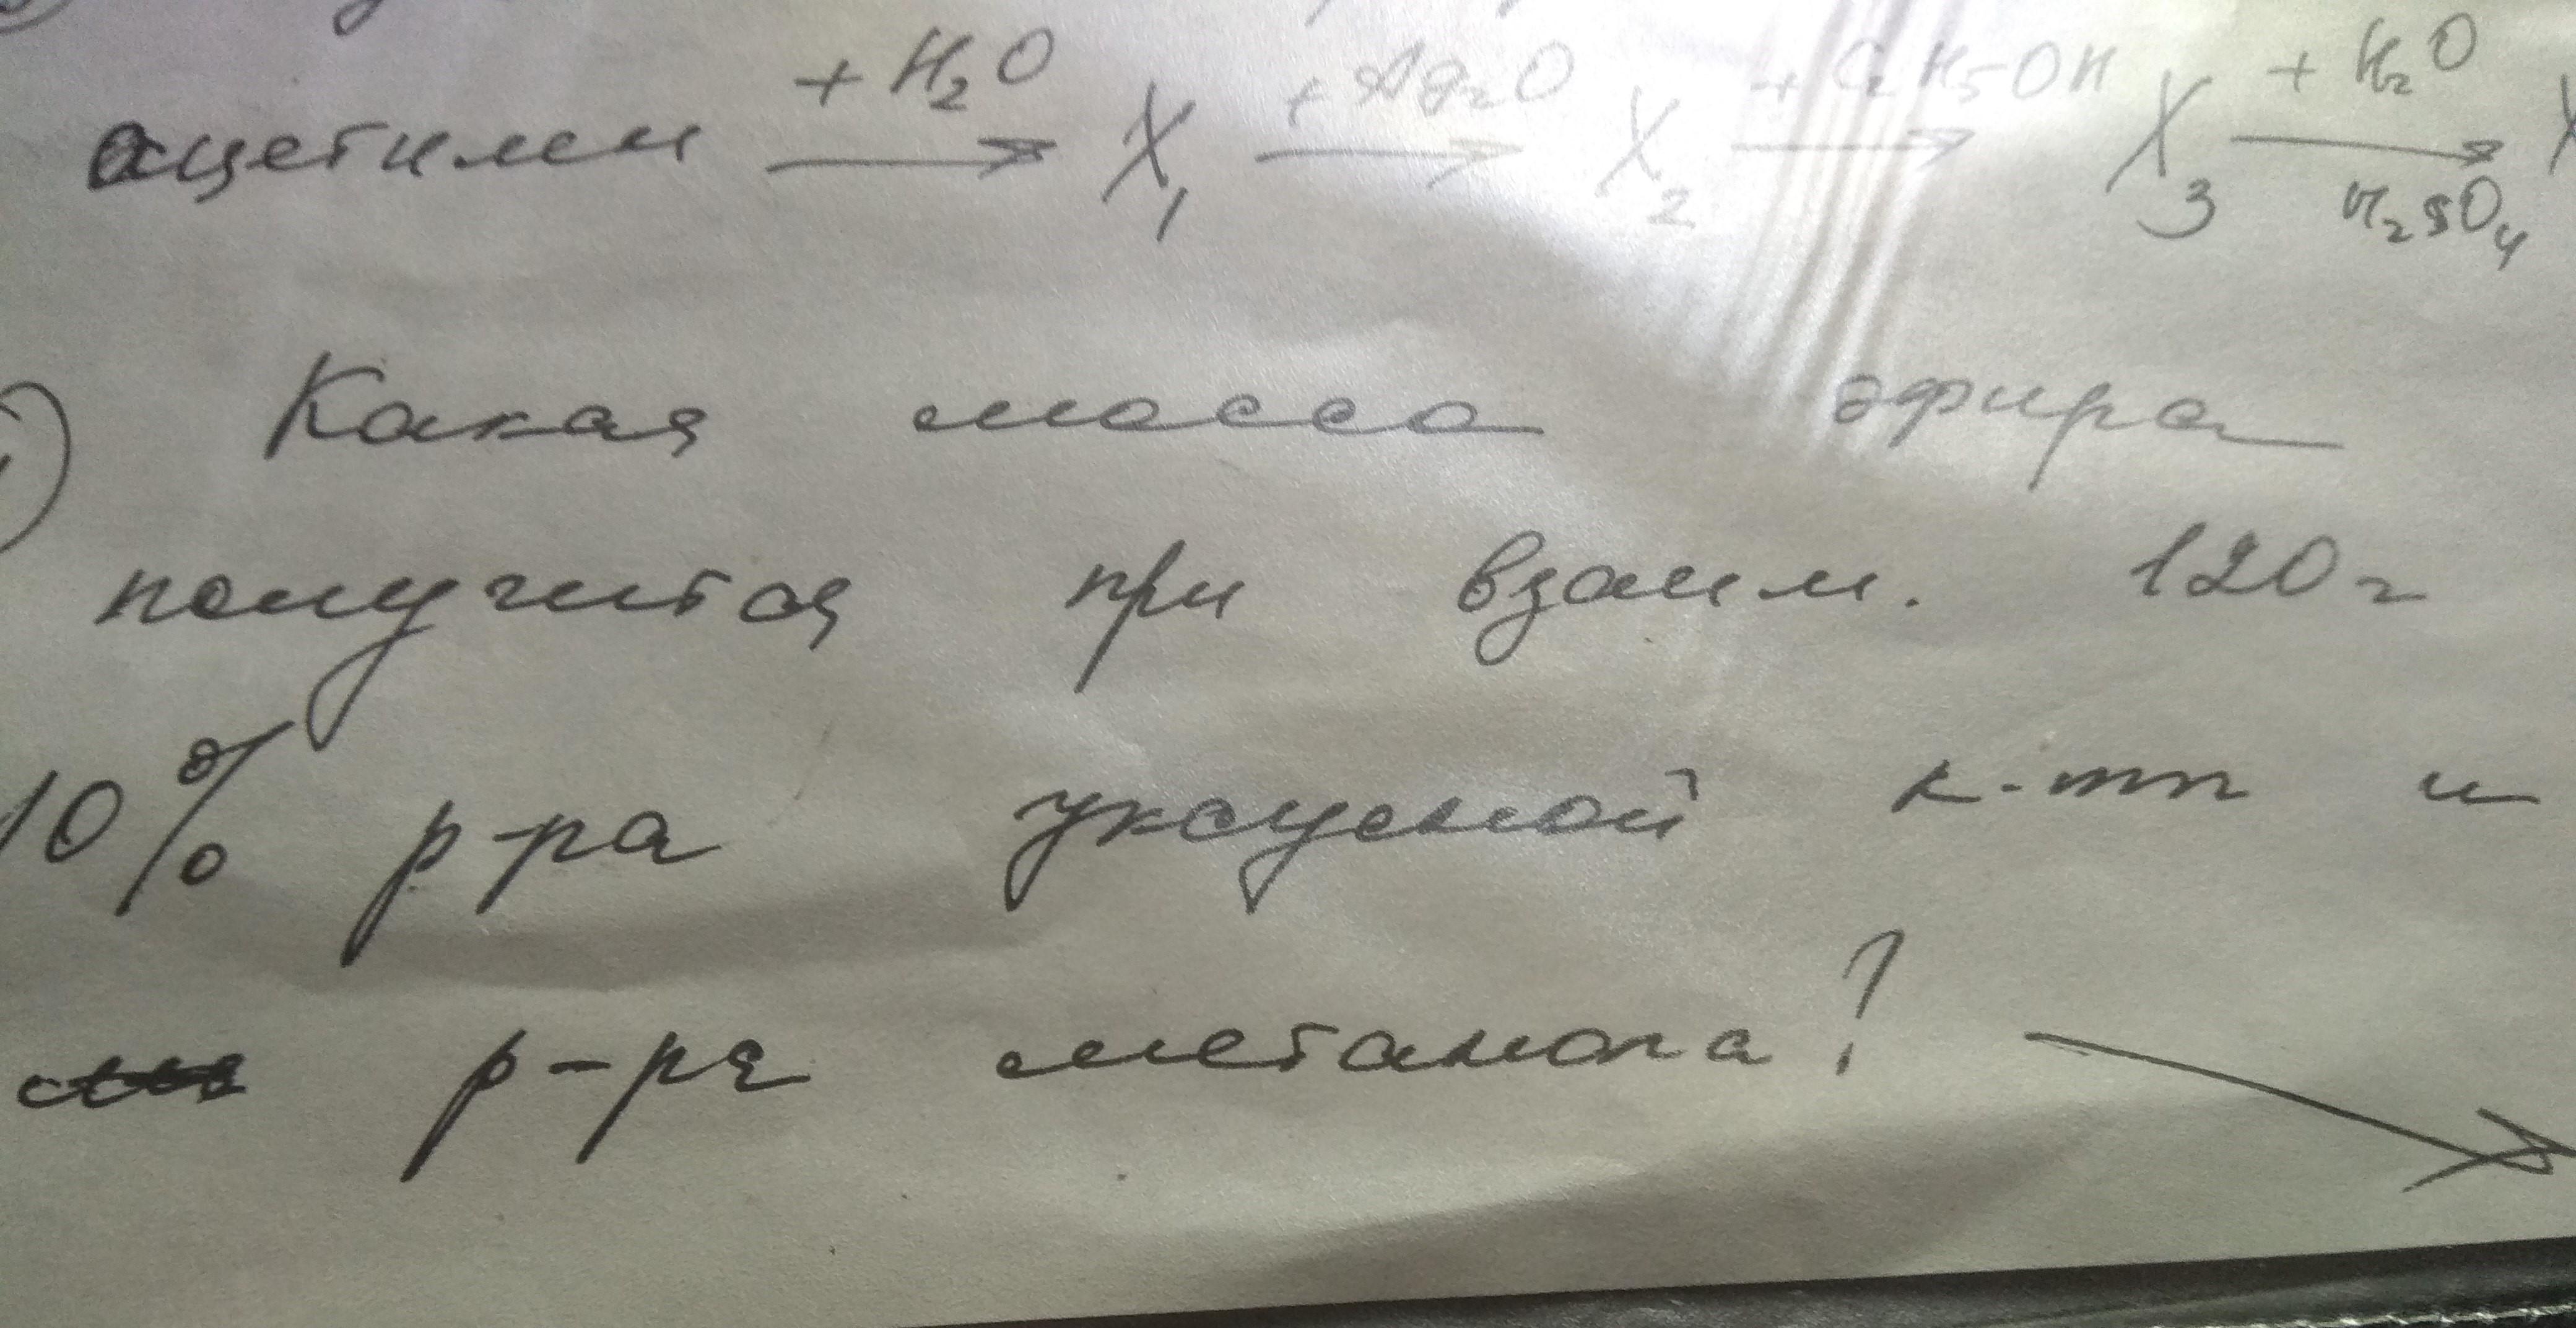 ацетилен +H₂O → X₁ +Ag₂O → X₂ +C₂H₅OH → X₃ +H₂O → H₂SO₄ X
Какая масса эфира
получится при взаим. 120 г
10% р-ра уксусной к-ты и
р-ра метанола?